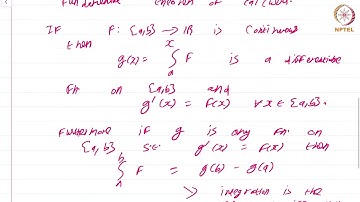 Fundamental theorem of calculus.
NPTEL
If F: [a,b] → IR is continuous
then
x
g(x) = ∫ F is a differentiable
a
fn on [a,b] and
g'(x) = F(x) ∀ x ∈ [a,b].
Furthermore if g is any fn on
[a,b] s.t. g'(x) = F(x) then
b
∫ F = g(b) - g(a)
a
integration is the